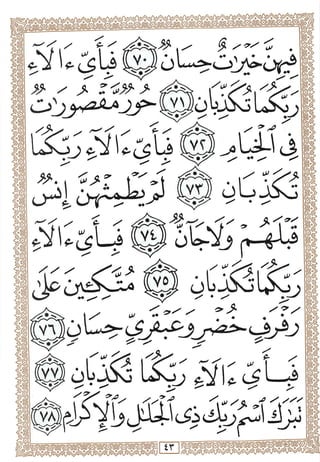 فِيهِنَّ خَيْرَٰتٌ حِسَانٌ ﴿٧٠﴾ فَبِأَىِّ ءَالَآءِ
رَبِّكُمَا تُكَذِّبَانِ ﴿٧١﴾ حُورٌ مَّقْصُورَٰتٌ
فِى ٱلْخِيَامِ ﴿٧٢﴾ فَبِأَىِّ ءَالَآءِ رَبِّكُمَا
تُكَذِّبَانِ ﴿٧٣﴾ لَمْ يَطْمِثْهُنَّ إِنسٌ
قَبْلَهُمْ وَلَا جَآنٌّ ﴿٧٤﴾ فَبِأَىِّ ءَالَآءِ
رَبِّكُمَا تُكَذِّبَانِ ﴿٧٥﴾ مُتَّكِـِٔينَ عَلَىٰ
رَفْرَفٍ خُضْرٍ وَعَبْقَرِىٍّ حِسَانٍ ﴿٧٦﴾
فَبِأَىِّ ءَالَآءِ رَبِّكُمَا تُكَذِّبَانِ ﴿٧٧﴾
تَبَٰرَكَ ٱسْمُ رَبِّكَ ذِى ٱلْجَلَٰلِ وَٱلْإِكْرَامِ ﴿٧٨﴾
٤٣